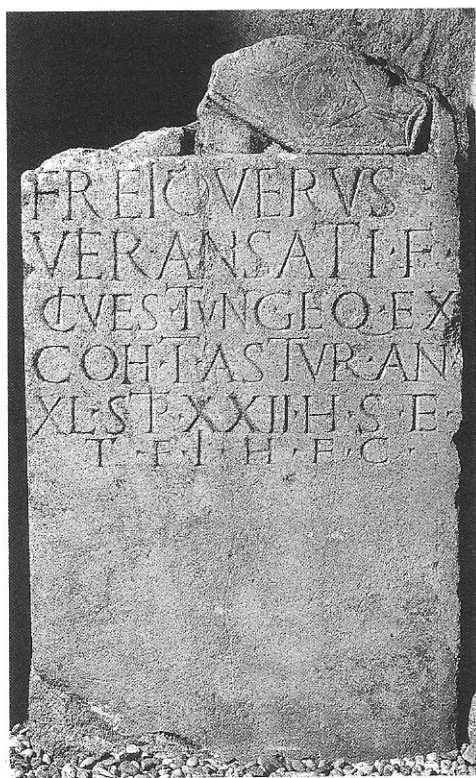 FREIOVERVS
VERANSATI·F
CIVES·TVNG·EQ·EX
COH·I·ASTVR·AN
XL·ST·XXII·H·S·E·
T·F·I·H·F·C·